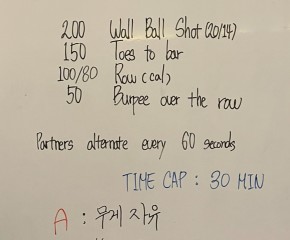 200 Wall Ball Shot (20/14)
150 Toes to bar
100/80 Row (cal)
50 Burpee over the row
Partners alternate every 60 seconds
TIME CAP : 30 MIN
A : 무게 자유